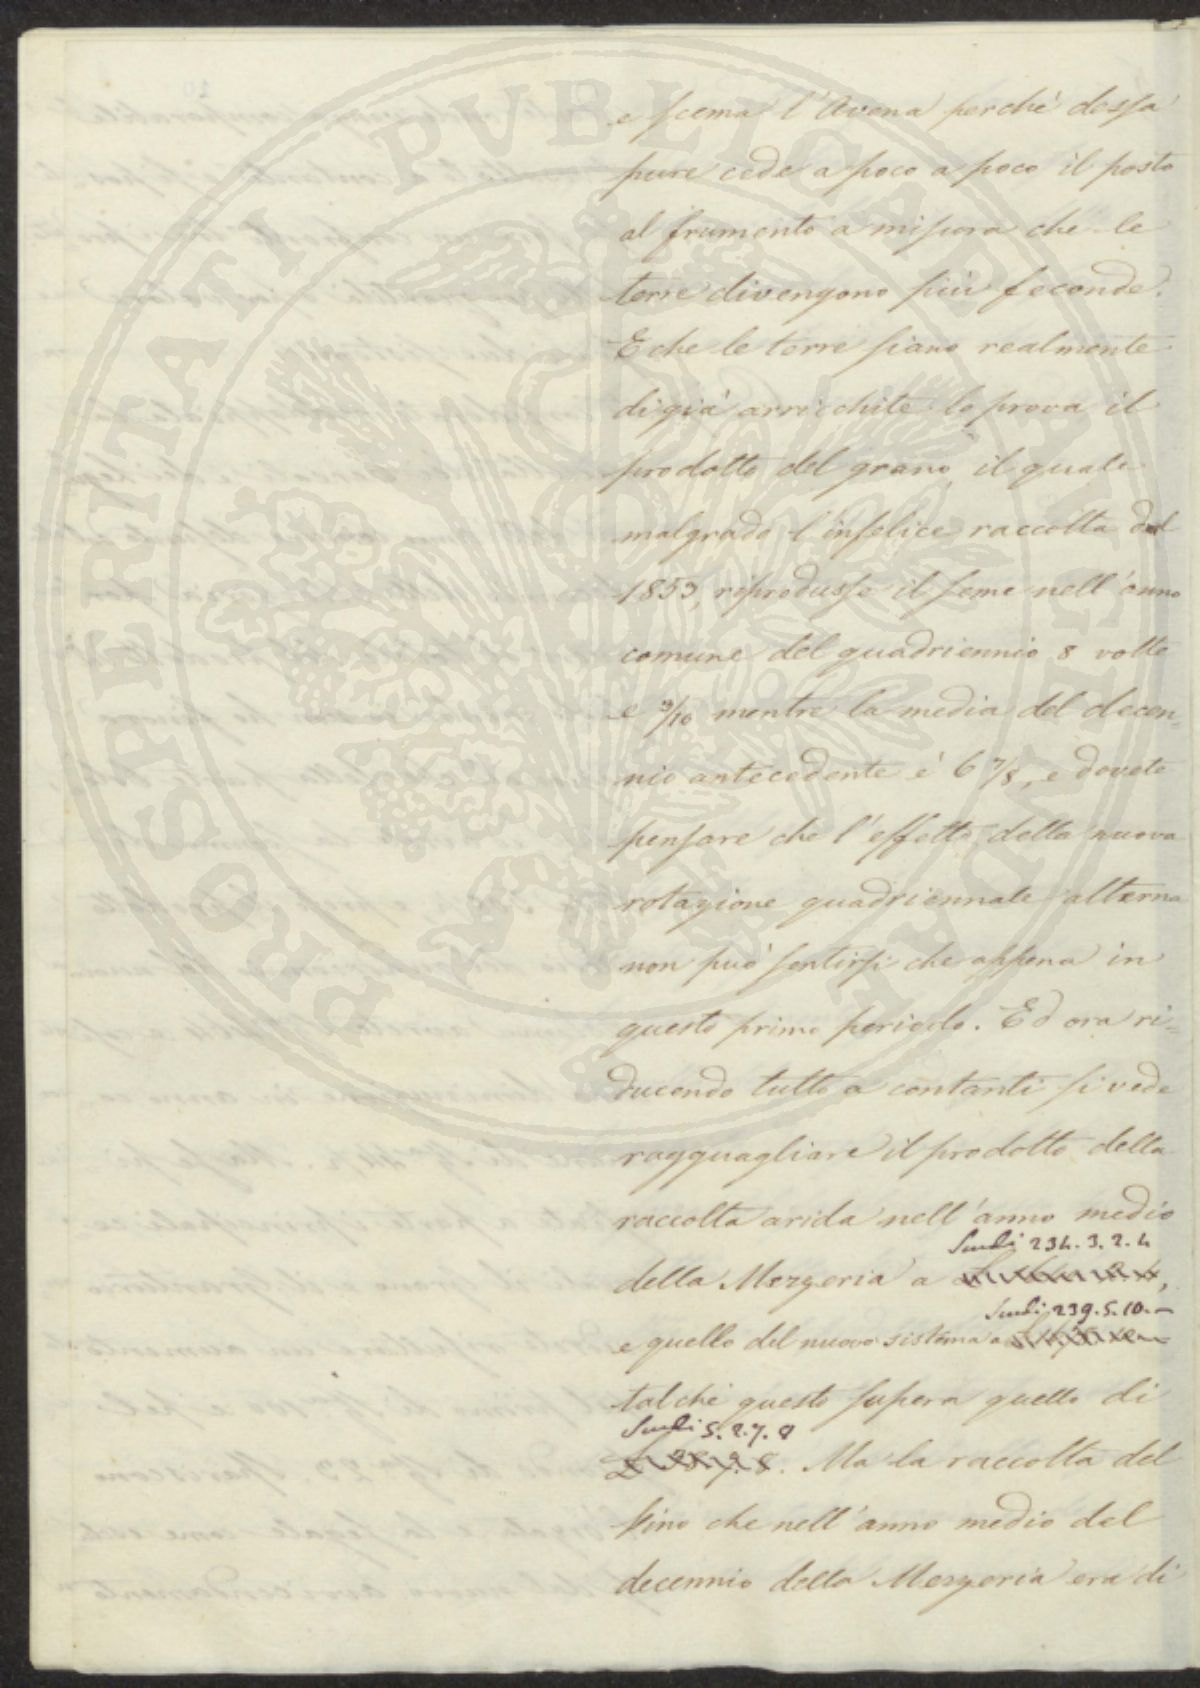 e scema l'Avena perchè dessa
pure cede a poco a poco il posto
al frumento a misura che le
terre divengono più feconde.
E che le terre siano realmente
di già arricchite lo prova il
prodotto del grano, il quale
malgrado l'infelice raccolta del
1853, riprodusse il seme nell'anno
comune del quadriennio 8 volte
e 9/10 mentre la media del decen=
nio antecedente è 6 7/8, e dovete
pensare che l'effetto della nuova
rotazione quadriennale alterna
non può sentirsi che appena in
questo primo periodo. Ed ora ri=
ducendo tutto a contanti si vede
ragguagliare il prodotto della
raccolta arida nell'anno medio
Scudi 234.3.2.4
della Mezzeria a
Scudi 239.5.10.-
e quello del nuovo sistema a
talchè questo supera quello di
Scudi 5.2.7.8
Ma la raccolta del
fino che nell'anno medio del
decennio della Mezzeria era di
PROSPERITATI PUBLICAE AUGENDAE